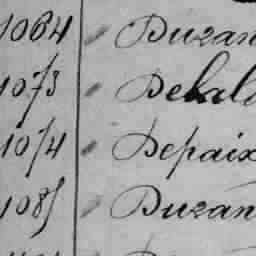 1064 " Duzan
1073 " Delal
1074 " Depaix
1085 " Duzan